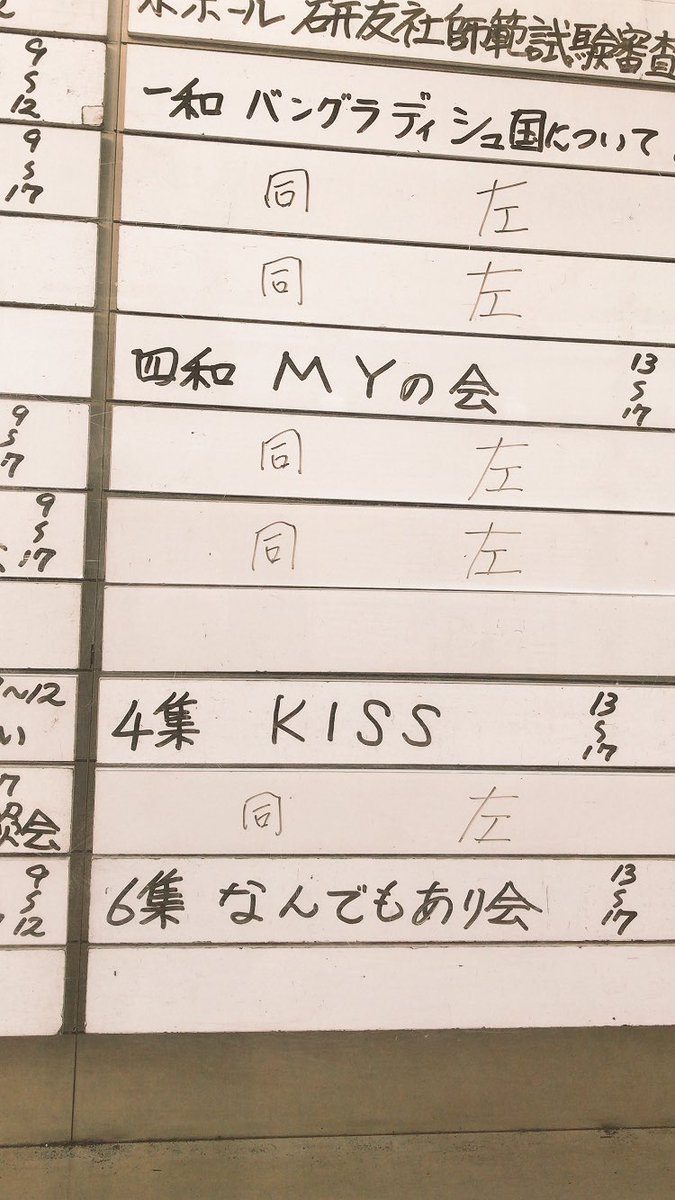 ホール 研友社師範試験審査
一和 バングラディシュ国について
同 左
同 左
四和 MYの会 13〜17
同 左
同 左
4集 KISS 13〜17
同 左
6集 なんでもあり会 13〜17
9〜12
9〜17
9〜17
〜12
い
会
9〜12